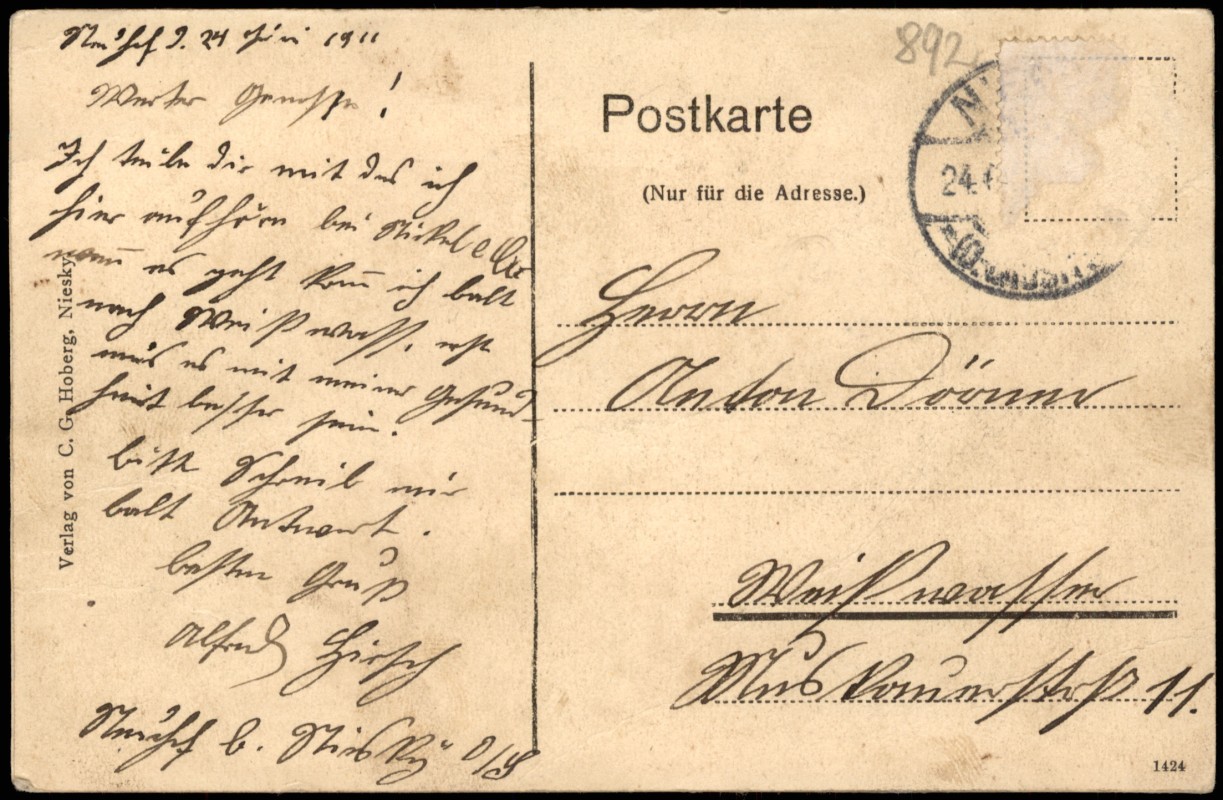 Neuhof d. 24 Juni 1911
Werter Genosse!
Ich teile dir mit das ich
hier aufhören bei Nickel
wenn es geht kom̅ ich balt
nach Weißwass. erst
mus es mit meiner Gesund-
heit besser sein.
bitte Schreib mir
balt Antwort.
besten Gruß
Alfred Hirsch
Neuhof b. Niesky O/L
Verlag von C. G. Hoberg, Niesky.
892
Postkarte
(Nur für die Adresse.)
24.
Herrn
Anton Dörner
Weißwasser
Muskauerstrß 11.
1424